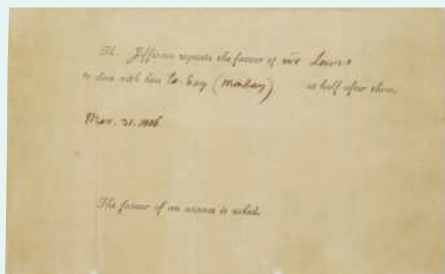 Th. Jefferson requests the favour of mr Lewis
to dine with him to-day (monday) at half after three.
Mar. 31. 1806.
The favour of an answer is asked.